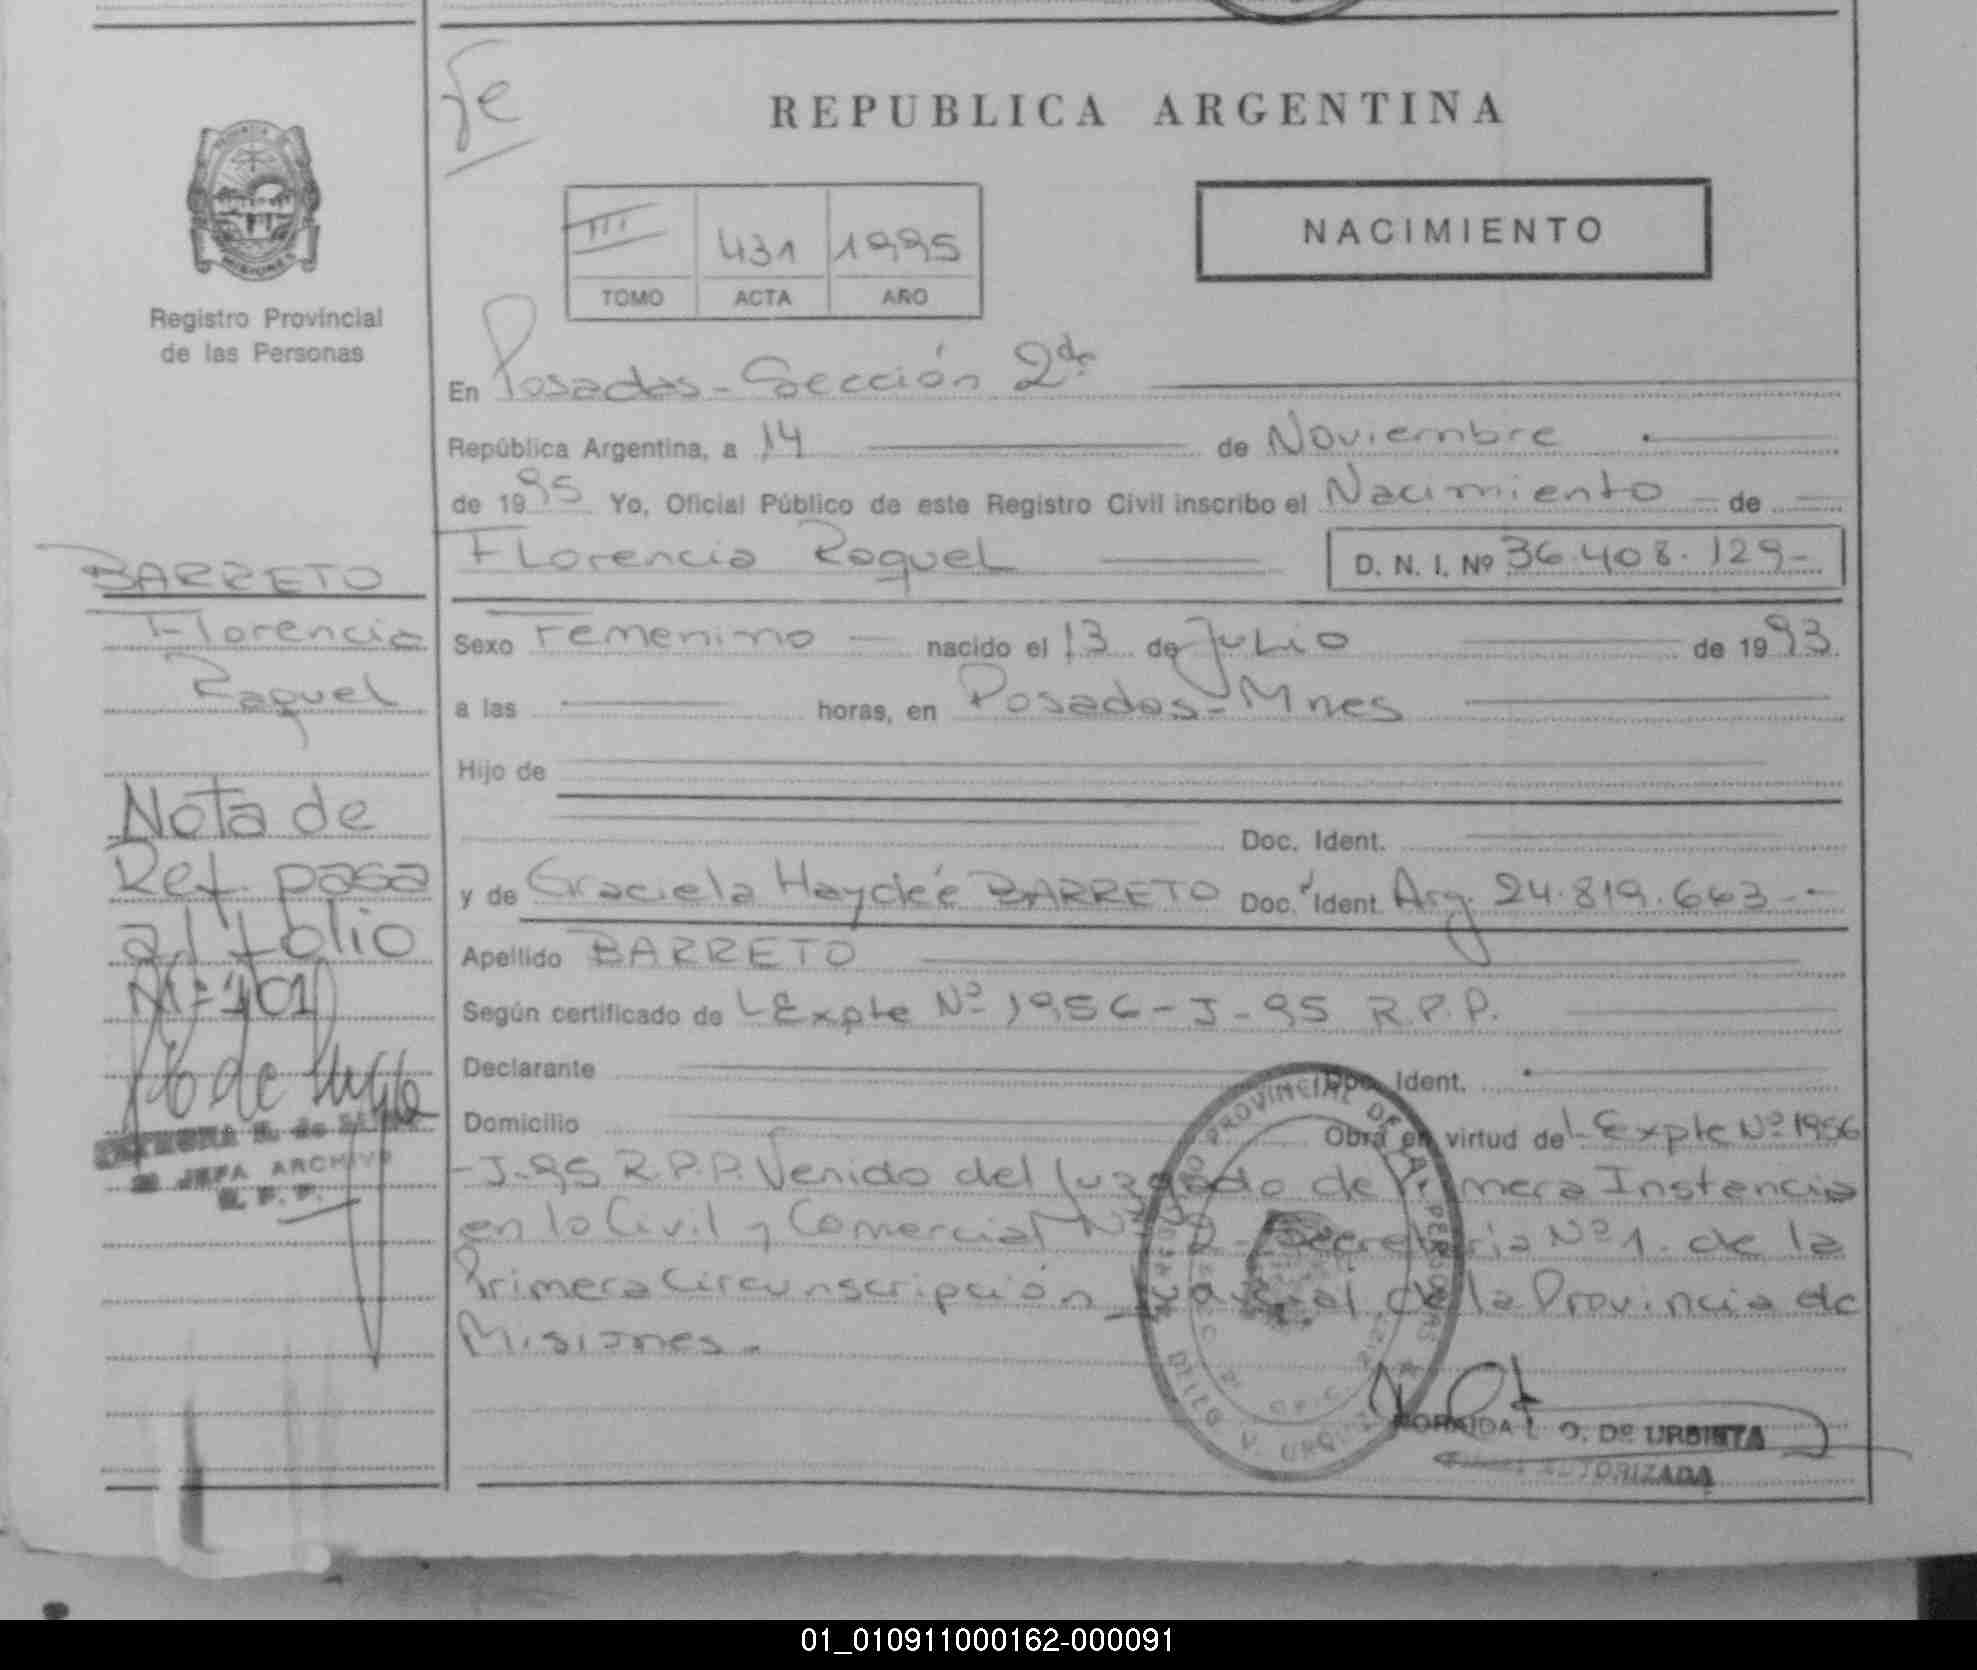 fe
REPUBLICA ARGENTINA
NACIMIENTO
III 431 1995
TOMO ACTA AÑO
MISIONES
Registro Provincial
de las Personas
En Posadas - Sección 2da
República Argentina, a 14 de Noviembre
de 1995 Yo, Oficial Público de este Registro Civil inscribo el Nacimiento de
Florencia Raquel D. N. I. Nº 36.408.129-
BARRETO
Florencia
Raquel
Sexo Femenino nacido el 13 de Julio de 1993.
a las horas, en Posadas - Mnes
Hijo de
Doc. Ident.
y de Graciela Haydeé BARRETO Doc. Ident. Arg. 24.819.663.-
Apellido BARRETO
Según certificado de L Expte Nº 1956-J-95 R.P.P.
Declarante Doc. Ident.
Domicilio Obra en virtud del Expte Nº 1956
-J-95 R.P.P. Venido del Juzgado de Primera Instancia
en lo Civil y Comercial Nº 2 - Secretaria Nº 1. de la
Primera Circunscripción Judicial de la Provincia de
Misiones.
Nota de
Ref. pasa
al folio
Nº 101
JEFA ARCHIVO
R. P. P.
PROVINCIAL DE LAS PERSONAS
DELEG. V. URQUIZA
O. De URBIETA
AUTORIZADA
01_010911000162-000091